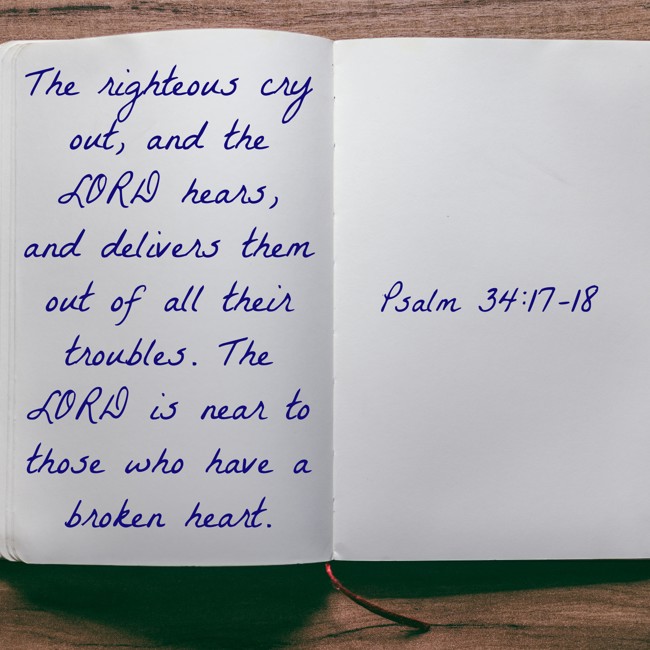 The righteous cry
out, and the
LORD hears,
and delivers them
out of all their
troubles. The
LORD is near to
those who have a
broken heart.
Psalm 34:17-18